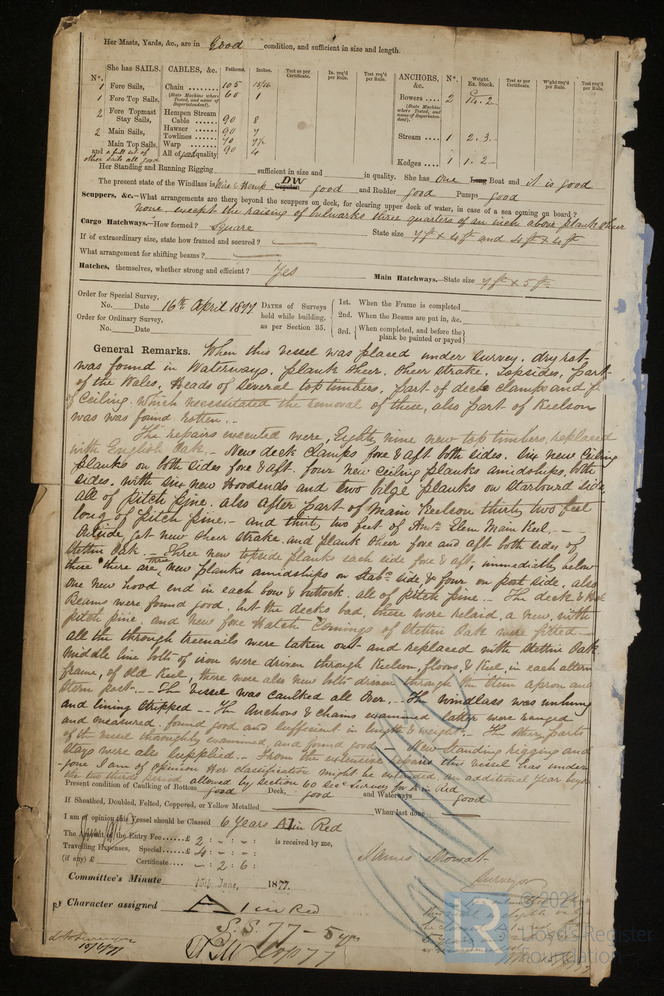 Her Masts, Yards, &c., are in Good condition, and sufficient in size and length.
She has SAILS. CABLES, &c. Fathoms. Inches. Test as per Certificate. In. req'd per Rule. Test req'd per Rule. ANCHORS, &c. Nº. Weight. Ex. Stock. Test as per Certificate. W'ght req'd per Rule. Test req'd per Rule.
Nº.
1 Fore Sails, Chain 105 15/16 Bowers 2
1 Fore Top Sails, (State Machine where Tested, and name of Superintendent). 60 1
2 Fore Topmast Stay Sails, Hempen Stream Cable 90 8
2 Main Sails, Hawser 90 7 Stream 1 2.3.-
Main Top Sails, Towlines
and a full set of Warp
other sails all good All of good quality 90 4 Kedges 1 1.2-
Her Standing and Running Rigging sufficient in size and in quality. She has One Long Boat and it is good
The present state of the Windlass is Capstan good and Rudder good Pumps good
Scuppers, &c.—What arrangements are there beyond the scuppers on deck, for clearing upper deck of water, in case of a sea coming on board?
none, except the raising of bulwarks three quarters of an inch above plank sheer
Cargo Hatchways.—How formed? Square State size 7ft x 4ft and 4ft x 4ft
If of extraordinary size, state how framed and secured?
What arrangement for shifting beams?
Hatches, themselves, whether strong and efficient? Yes Main Hatchways.—State size 7ft x 5ft
Order for Special Survey, No. Date 16th April 1877
Order for Ordinary Survey, No. Date
DATES of Surveys held while building, as per Section 35.
1st. When the Frame is completed
2nd. When the Beams are put in, &c.
3rd. When completed, and before the plank be painted or payed
General Remarks. When this vessel was placed under survey, dry rot
was found in Waterways, plank sheer, sheer strake, topsides, part
of the Wales, Heads of several top timbers, part of deck clamps and
of Ceiling. Which necessitated the removal of these, also part of Keelson
was was found rotten.
The repairs executed were, Eighty nine new top timbers, replaced
with English Oak.- New deck clamps fore & aft both sides. Six new Ceiling
planks on both sides fore & aft. four new ceiling planks amidships, both
sides, with six new Hoodends and two bilge planks on starboard side
all of pitch pine. also after part of Main Keelson thirty two feet
long of pitch pine.- and thirty two feet of Amn Elm Main Keel.-
Outside, got new sheer strake, and plank sheer fore and aft both sides of
Stettin Oak.- Three new topside planks each side fore & aft. immediately below
these there are three new planks amidships on Stabd side & four on port side, also
one new hood end in each bow & buttock. all of pitch pine.- The deck &
Beams were found good, but the decks bad, these were relaid, a new, with
pitch pine, and new fore Hatch Comings of Stettin Oak were fitted-
all the through treenails were taken out and replaced with Stettin Oak
Middle line bolts of iron were driven through Keelson, floors, & Keel, in each altern
frame, of old Keel, there were also new bolts driven through the Stem apron and
Stern post.- The Vessel was caulked all Over.- The windlass was unhung
and lining stripped - The Anchors & Chains examined latter were ranged
and measured, found good and sufficient in length & weight.- The other parts
of the vessel thoroughly examined, and found good.- New Standing rigging and
Stays were also supplied.- From the extensive repairs this vessel has under-
gone I am of opinion Her classification might be extended, an additional Year beyo
the two thirds period allowed by Section 60 Secd Survey for A in Red
Present condition of Caulking of Bottom good Deck, good and Waterways good
If Sheathed, Doubled, Felted, Coppered, or Yellow Metalled When last done
I am of opinion this Vessel should be Classed 6 Years A1 in Red
The Amount of the Entry Fee £ 2 : - : - is received by me,
Travelling Expenses, Special £ 4 : - : -
(if any) £ Certificate - : 2 : 6 :
James Mowat
Surveyor
Committee's Minute 15th June, 1877.
Character assigned A 1 in Red
S.S. 77 - 5 yrs
15/6/77
© 2021
Lloyd's Register
Foundation